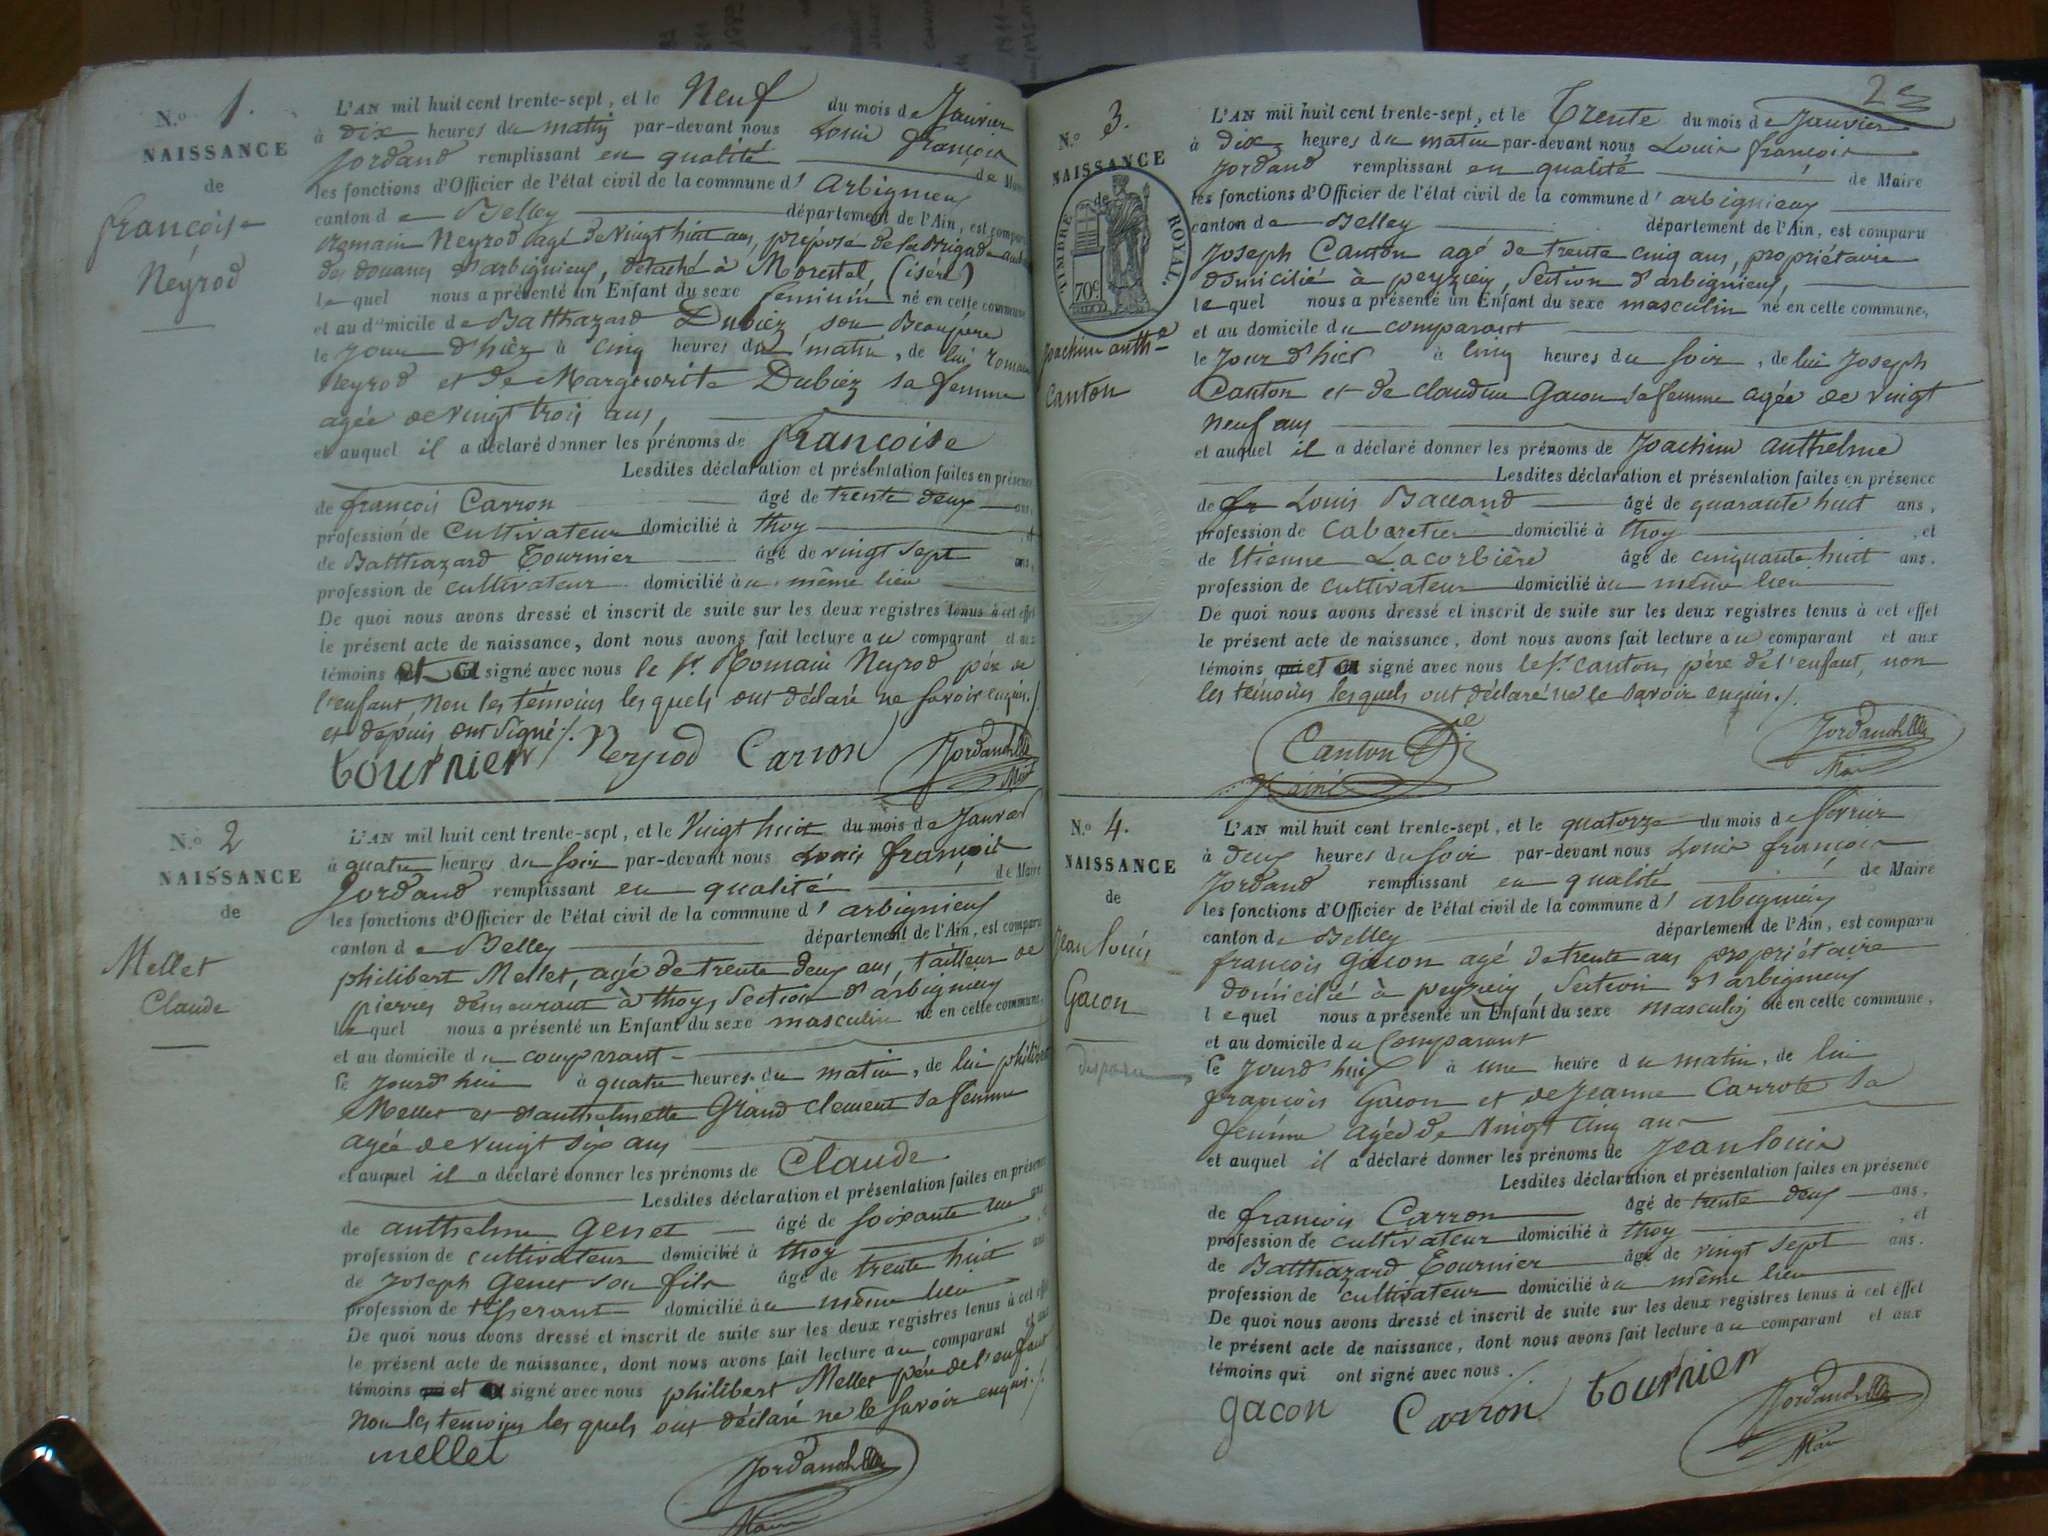 N.o 1.
NAISSANCE
de
françoise
Neyrod
L'AN mil huit cent trente-sept, et le Neuf du mois de Janvier
à dix heures du matin par-devant nous Louis françois
Jordand remplissant en qualité de Maire
les fonctions d'Officier de l'état civil de la commune d' arbignieu
canton de Belley département de l'Ain, est comparu
Romain Neyrod agé de vingt huit ans, préposé de la brigade
des douanes d'arbignieu, détaché à Morestel, (isère)
lequel nous a présenté un Enfant du sexe feminin né en cette commune
et au domicile de Balthazard Dubiez son Beaupère
le jour d'hièr à cinq heures du matin, de lui romain
Neyrod et de Marguerite Dubiez sa femme
agée de vingt trois ans,
et auquel il a déclaré donner les prénoms de francoise
Lesdites déclaration et présentation faites en présence
de françois Carron âgé de trente deux ans
profession de Cultivateur domicilié à thoy et
de Balthazard Tournier âgé de vingt sept ans,
profession de cultivateur domicilié au même lieu
De quoi nous avons dressé et inscrit de suite sur les deux registres tenus à cet effet
le présent acte de naissance, dont nous avons fait lecture au comparant et aux
témoins et a signé avec nous le sr. Romain Neyrod père de
l'enfant Non les témoins lesquels ont déclaré ne savoir enquis./.
et depuis ont signé/.
tournier Neyrod Carron Jordand
Maire
N.o 2
NAISSANCE
de
Mellet
Claude
L'AN mil huit cent trente-sept, et le Vingt huit du mois de Janvier
à quatre heures du soir par-devant nous Louis françois
Jordand remplissant en qualité de Maire
les fonctions d'Officier de l'état civil de la commune d' arbignieu
canton de Belley département de l'Ain, est comparu
philibert Mellet, agé de trente deux ans, tailleur de
pierres demeurant à thoy, Section d'arbignieu
lequel nous a présenté un Enfant du sexe masculin né en cette commune,
et au domicile du comparant
le Jourd'hui à quatre heures du matin, de lui philibert
Mellet et d'anthelmette Grand clement sa femme
agée de vingt six ans
et auquel il a déclaré donner les prénoms de Claude
Lesdites déclaration et présentation faites en présence
de anthelme Genet âgé de soixante un ans
profession de cultivateur domicilié à thoy
de Joseph Genet son fils âgé de trente huit ans
profession de tisserant domicilié au même lieu
De quoi nous avons dressé et inscrit de suite sur les deux registres tenus à cet effet
le présent acte de naissance, dont nous avons fait lecture au comparant et aux
témoins et a signé avec nous philibert Mellet père de l'enfant
Non les temoins les quels ont déclaré ne le savoir enquis./.
mellet
Jordand
Maire
2
N.o 3.
NAISSANCE
de
TIMBRE ROYAL.
70c
Joachim anthe
Canton
L'AN mil huit cent trente-sept, et le Trente du mois de Janvier
à dix heures du matin par-devant nous Louis françois
Jordand remplissant en qualité de Maire
les fonctions d'Officier de l'état civil de la commune d' arbignieu
canton de Belley département de l'Ain, est comparu
Joseph Canton agé de trente cinq ans, propriétaire
domicilié à peyzieu, Section d'arbignieu,
lequel nous a présenté un Enfant du sexe masculin né en cette commune,
et au domicile du comparant
le Jour d'hier à cinq heures du soir, de lui Joseph
Canton et de claudine Gacon sa femme agée de vingt
neuf ans
et auquel il a déclaré donner les prénoms de Joachim anthelme
Lesdites déclaration et présentation faites en présence
de fr Louis Balland âgé de quarante huit ans,
profession de Cabaretier domicilié à thoy , et
de Etienne Lacorbière âgé de cinquante huit ans.
profession de cultivateur domicilié au même lieu
De quoi nous avons dressé et inscrit de suite sur les deux registres tenus à cet effet
le présent acte de naissance, dont nous avons fait lecture au comparant et aux
témoins qui et a signé avec nous le sr. canton, père de l'enfant, non
les témoins lesquels ont déclaré ne le savoir enquis./.
Canton
Jordand
Maire
N.o 4.
NAISSANCE
de
Jean louis
Gacon
L'AN mil huit cent trente-sept, et le quatorze du mois de février
à deux heures du soir par-devant nous Louis françois
Jordand remplissant en qualité de Maire
les fonctions d'Officier de l'état civil de la commune d' arbignieu
canton de Belley département de l'Ain, est comparu
françois Gacon agé de trente ans propriétaire
domicilié à peyzieu, Section d'arbignieu
lequel nous a présenté un Enfant du sexe masculin né en cette commune,
et au domicile du Comparant
le Jourd'hui à une heure du matin, de lui
françois Gacon et de Jeanne Carrote sa
femme agée de vingt cinq ans
et auquel il a déclaré donner les prénoms de Jean louis
Lesdites déclaration et présentation faites en présence
de françois Carron âgé de trente deux ans,
profession de cultivateur domicilié à thoy , et
de Balthazard Tournier âgé de vingt sept ans.
profession de cultivateur domicilié au même lieu
De quoi nous avons dressé et inscrit de suite sur les deux registres tenus à cet effet
le présent acte de naissance, dont nous avons fait lecture au comparant et aux
témoins qui ont signé avec nous ./.
gacon Carron tournier
Jordand
Maire